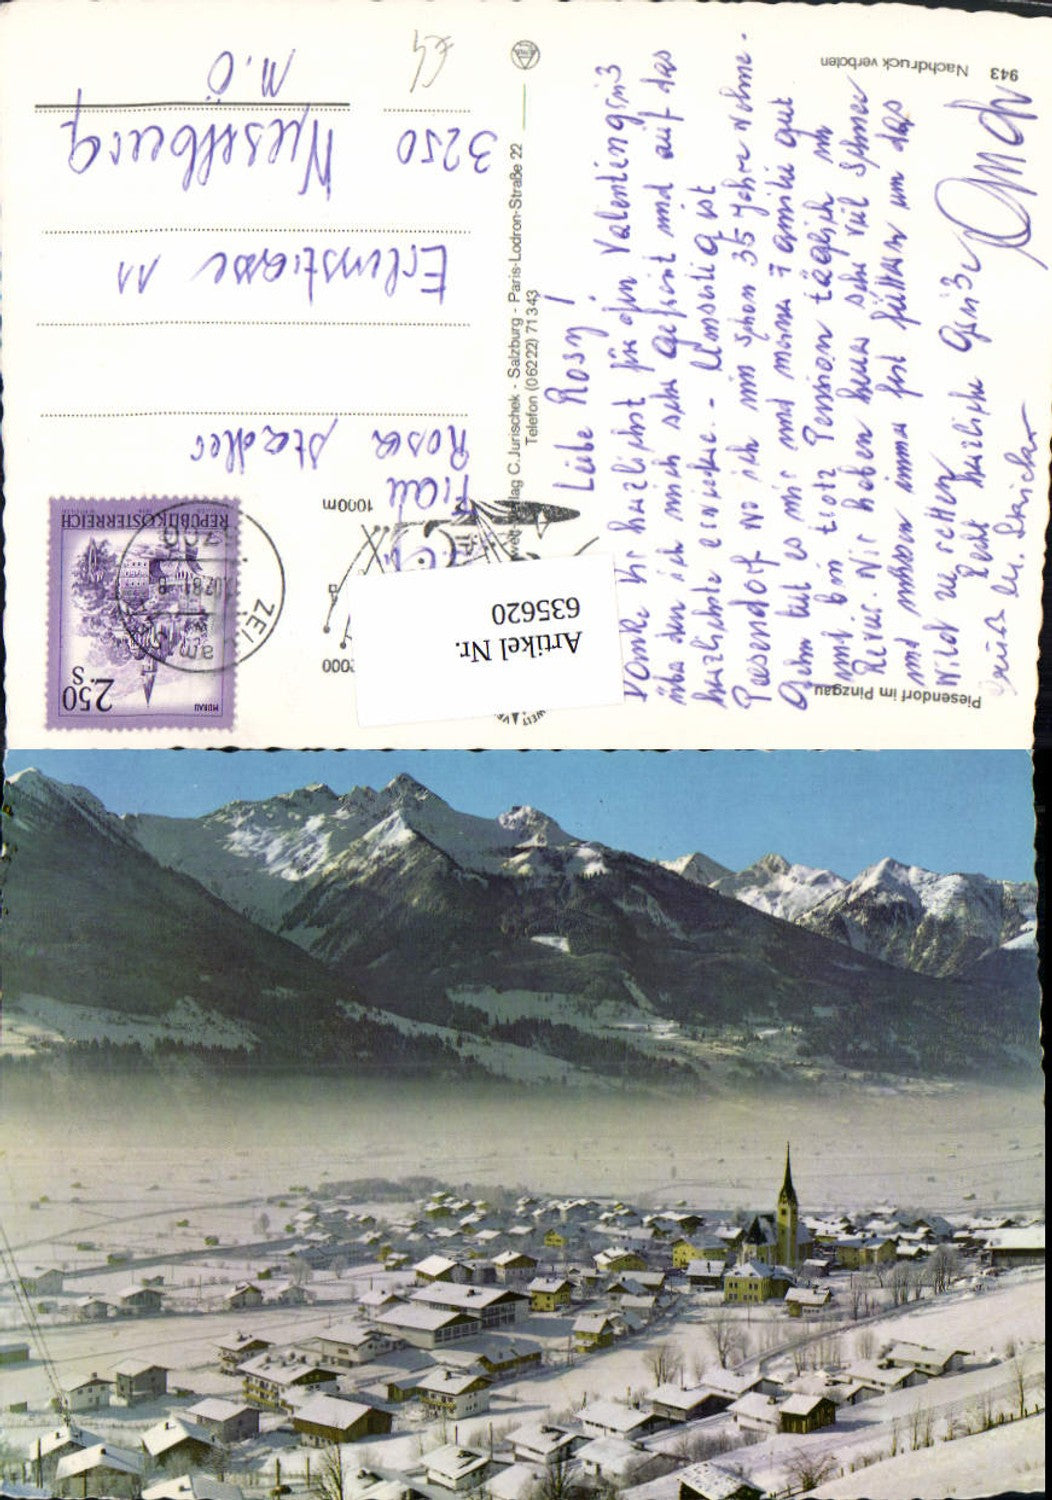 943 Nachdruck verboten
Piesendorf im Pinzgau
Liebe Rosy!
Danke Dir herzlichst für dein Valentingruß
über den ich mich sehr gefreut und auf das
herzlichste erwidere. - Umseitig ist
Piesendorf wo ich nun schon 35 Jahre wohne.
Gehn tut es mir und meiner Familie gut
und bin trotz Pension täglich im
Revier. Wir haben heuer sehr viel Schnee
und müssen immer fest füttern um das
Wild zu retten.
Recht herzliche Grüße
Welt Verlag C. Jurischek - Salzburg - Paris-Lodron-Straße 22
Telefon (06222) 71343
2.50 S
MURAU
REPUBLIK ÖSTERREICH
ZELL am
5700
1000m
2000
Frau
Rosa Stadler
Erlenstrasse 11
3250 Wieselburg
N.Ö
Artikel Nr.
635620